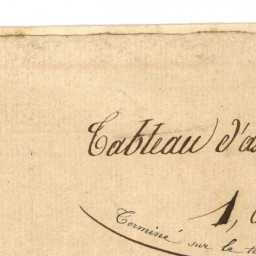 Tableau d'a
1,
Terminé sur le